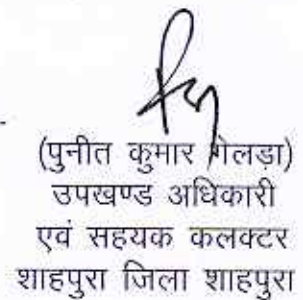 (पुनीत कुमार गेलड़ा)
उपखण्ड अधिकारी
एवं सहयक कलक्टर
शाहपुरा जिला शाहपुरा